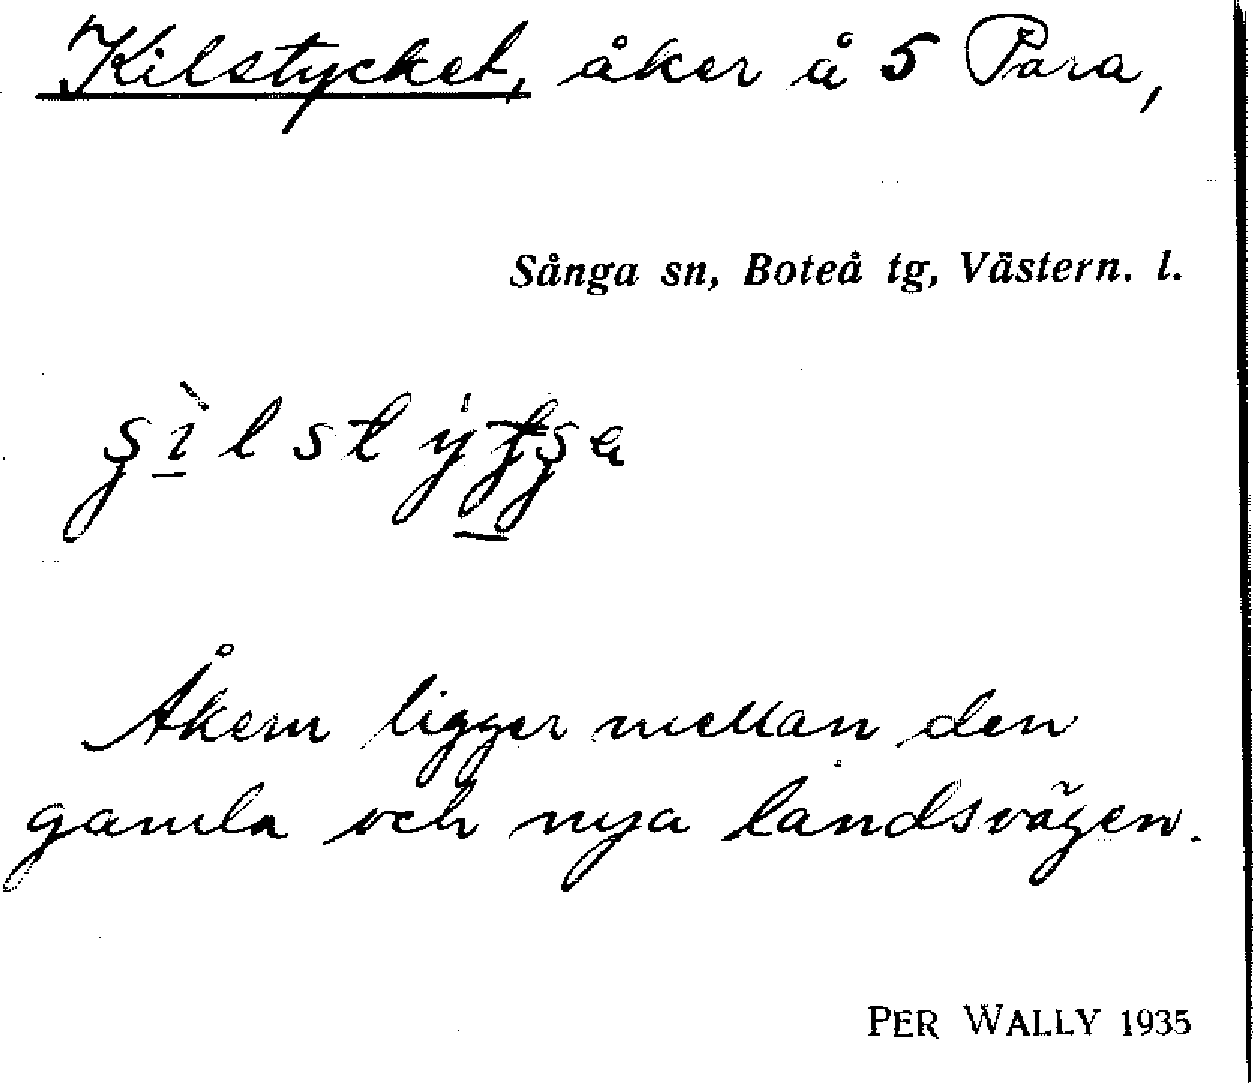 Kilstycket, åker å 5 Para,
Sånga sn, Boteå tg, Västern. l.
Åkern ligger mellan den
gamla och nya landsvägen.
PER WALLY 1935